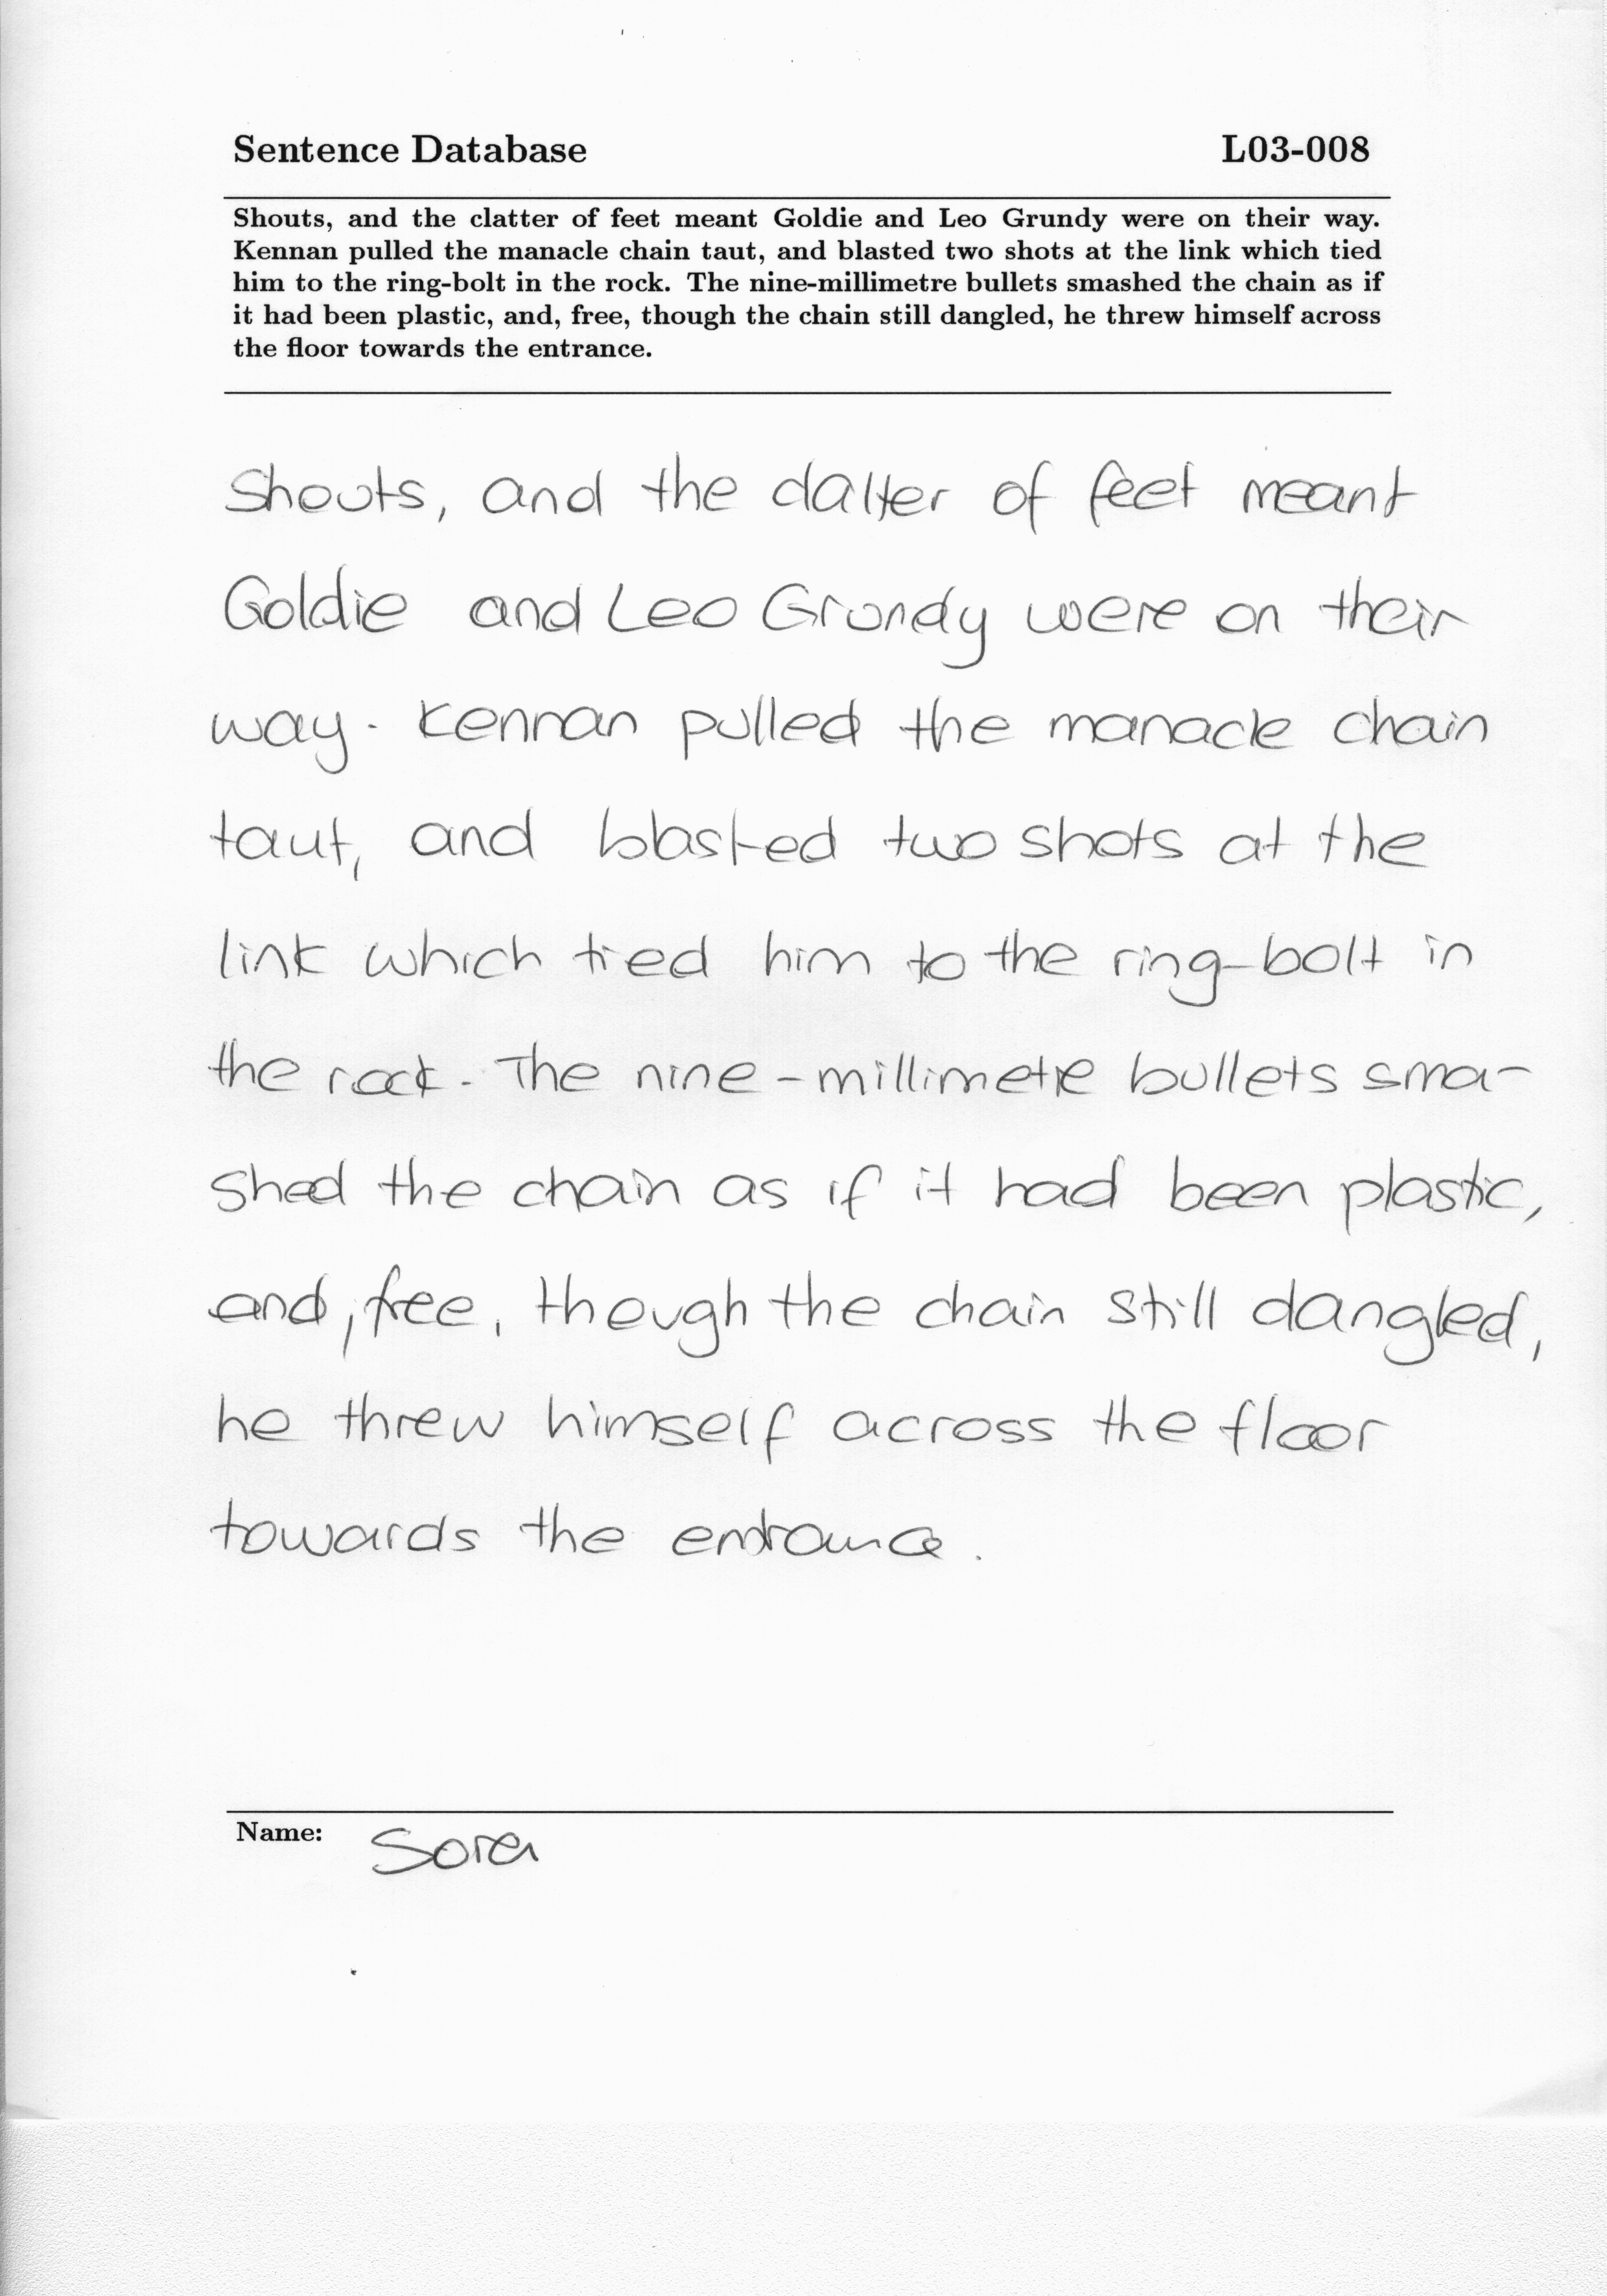 Sentence Database L03-008
Shouts, and the clatter of feet meant Goldie and Leo Grundy were on their way.
Kennan pulled the manacle chain taut, and blasted two shots at the link which tied
him to the ring-bolt in the rock. The nine-millimetre bullets smashed the chain as if
it had been plastic, and, free, though the chain still dangled, he threw himself across
the floor towards the entrance.
Shouts, and the clatter of feet meant
Goldie and Leo Grundy were on their
way. Kennan pulled the manacle chain
taut, and blasted two shots at the
link which tied him to the ring-bolt in
the rock. The nine-millimetre bullets sma-
shed the chain as if it had been plastic,
and, free, though the chain still dangled,
he threw himself across the floor
towards the entrance.
Name: Sora